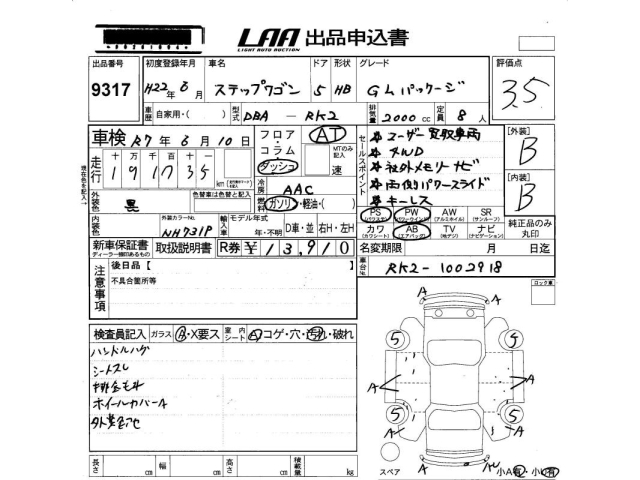 LAA 出品申込書
LIGHT AUTO AUCTION
出品番号 初度登録年月 車名 ドア 形状 グレード 評価点
9317 H22年8月 ステップワゴン 5 HB GLパッケージ 3.5
車歴 自家用・( ) 型式 DBA - RK2 排気量 2000cc 定員 8人
車検 R7年8月10日 フロア・コラム・ダッシュ AT MTのみ記入 速
走行 十万 万 千 百 十 km
現在色を記入
外装色 黒 色替車は色替と記入
冷房 AAC
燃料 ガソリン・軽油・( )
内装色 外装カラーNo. NH731P 輸入車 モデル年式 年・不明 D車・並 右H・左H
新車保証書 ディーラー捺印あるもの 取扱説明書 R券 ¥13,910
セールスポイント
ユーザー買取車両
4WD
社外メモリーナビ
両側パワースライド
キーレス
PS (パワステ) PW (パワーウインド) AW (アルミホイル) SR (サンルーフ)
カワ (カワシート) AB (エアバッグ) TV (地デジ) ナビ (ナビゲーション)
純正品のみ丸印
【外装】 B
【内装】 B
名変期限 月 日迄
車台No. RK2-1002918
注意事項 後日品【
不具合箇所等
ロック車
検査員記入 ガラス B・X要ス 室内シート A コゲ・穴・汚れ・破れ
ハンドルハゲ
シートスレ
ホイールカバーA
長さ cm 幅 cm 高さ cm 積載量 kg
A A
5 5
A A
5 5
A A
A
スペア 小A有・小U有